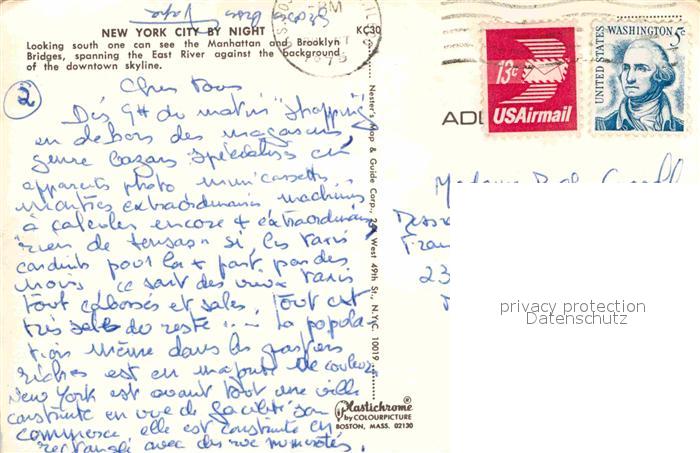 Grosses Bises
Papa
NEW YORK CITY BY NIGHT KC30
Looking south one can see the Manhattan and Brooklyn
Bridges, spanning the East River against the background
of the downtown skyline.
PM
1975
13c
USAirmail
UNITED STATES
WASHINGTON 5c
2
Cher Tous
Dès 9H du matin "shopping"
en dehors des magasins
genre bazars spécialisés en
apparails photo mini cassettes
montres extraordinaires machines
à calculer encore + extraordinaires
rien de tensas - si, les taxis
conduits pour la + part par des
noirs ce sont des vieux taxis
tout cabossés et sales, tout est
très sale du reste - la popula
tion même dans les quartiers
riches est en majorité de couleur
New York est avant tout une ville
construite en vue de faciliter son
commerce elle est construite en
rectangle avec des rue numérotés.
Nester's Map & Guide Corp., West 49th St., N.Y.C. 10019
Plastichrome®
by COLOURPICTURE
BOSTON, MASS. 02130
AD
Madame
23
privacy protection
Datenschutz